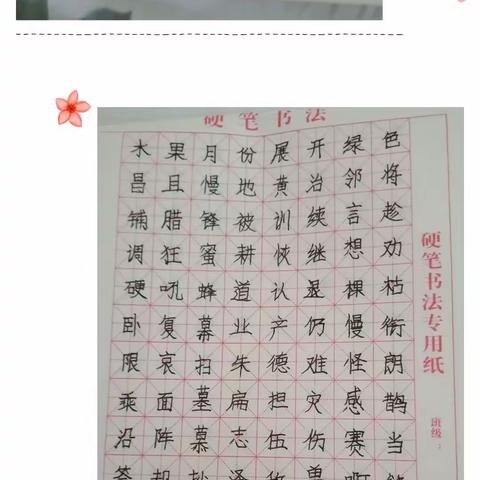 硬笔书法
木果月份展开绿色
昌且慢地黄治邻将
铺腊锋被训续言趁
调狂蜜耕恢继想劝
硬吼蜂道认显棵枯
卧复幕业产仍慢衔
限哀扫朱德难怪朗
乘面墓扁担灾感鹊
沿阵慕志伍伤赛当
硬笔书法专用纸
班级：